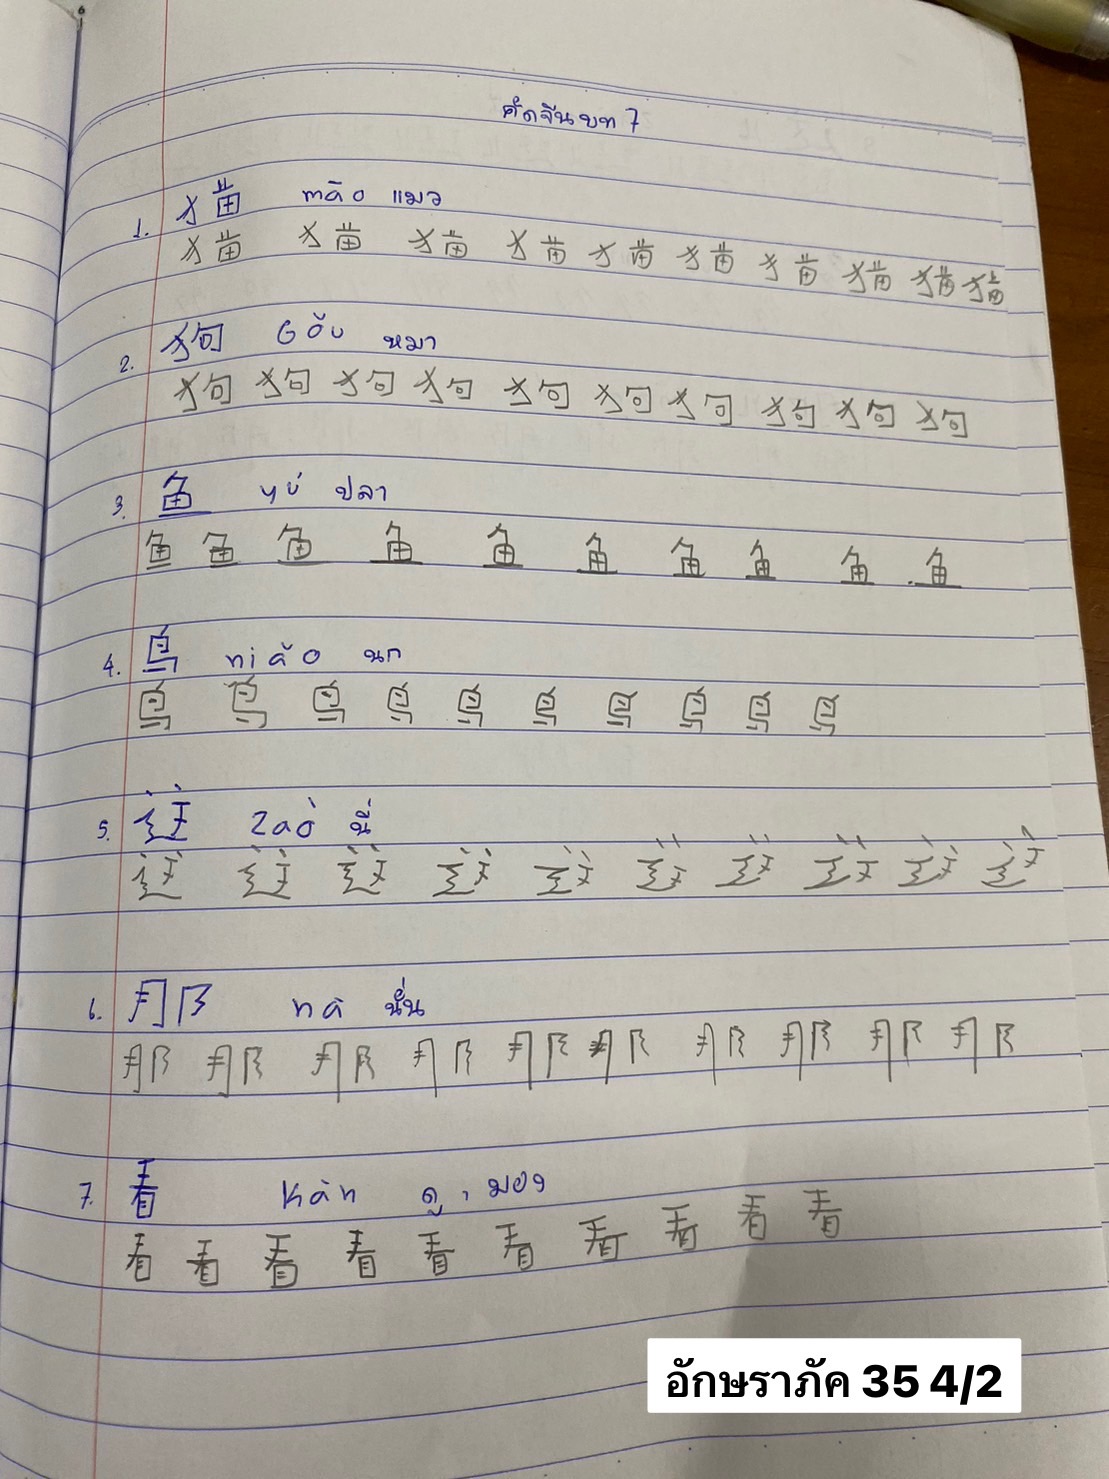 คัดจีนบท 7
1. 猫 māo แมว
猫 猫 猫 猫 猫 猫 猫 猫 猫 猫
2. 狗 Gǒu หมา
狗 狗 狗 狗 狗 狗 狗 狗 狗 狗
3. 鱼 yú ปลา
鱼 鱼 鱼 鱼 鱼 鱼 鱼 鱼 鱼 鱼
4. 鸟 niǎo นก
鸟 鸟 鸟 鸟 鸟 鸟 鸟 鸟 鸟 鸟
5. 这 Zaò นี่
这 这 这 这 这 这 这 这 这 这
6. 那 nà นั่น
那 那 那 那 那 那 那 那 那 那
7. 看 Kàn ดู, มอง
看 看 看 看 看 看 看 看 看 看
อักษราภัค 35 4/2